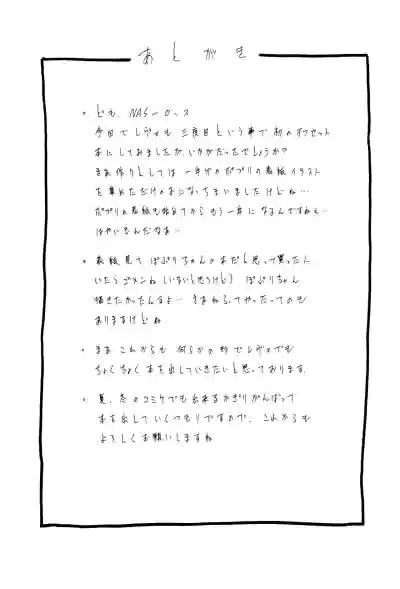 あとがき
。ども、NAS-0-ス
今日でレヴォも三度目という事で初のオフセット
本にしておましたが、いかがだったでしょうか?
まぁ作りとしては一年分のポプリの表紙イラスト
を集めただけの本になっちまいましたけどね…
ポプリの表紙も始めてからもう一年になるんですねぇ…
はやいもんだなぁ…
。表紙見てぽぷりちゃんの本だと思って買った人
いたらゴメンね(いないと思うけど) ぽぷりちゃん
描きたかったんすよ… まぁねらってやったってのも
ありますけどね
。まぁ これからも 何らかの形でレヴォでも
ちょくちょく本を出していきたいと思っております。
。夏、冬のコミケでも出来るかぎりがんばって
本を出していくつもりですので、これからも
よろしくお願いしますね